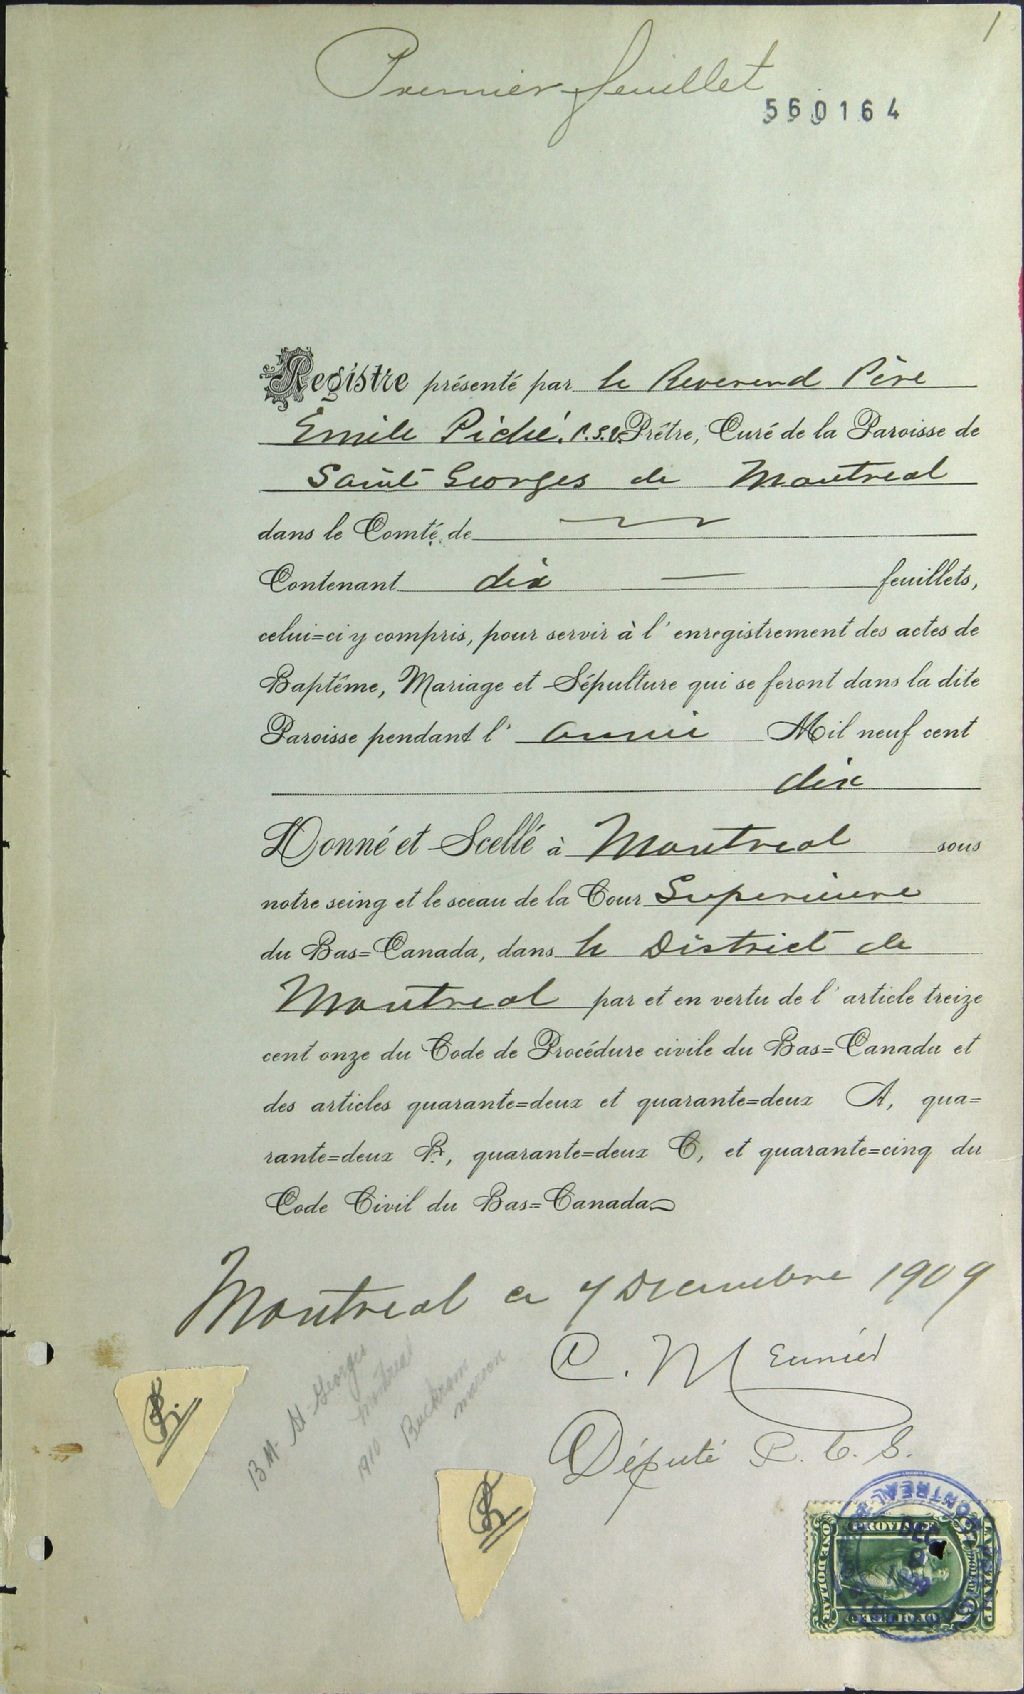 1
Premier feuillet
560164
Registre présenté par le Reverend Père
Émile Piché, c.s.v. Prêtre, Curé de la Paroisse de
Saint Georges de Montreal
dans le Comté de
Contenant dix — feuillets,
celui=ci y compris, pour servir à l'enregistrement des actes de
Baptême, Mariage et Sépulture qui se feront dans la dite
Paroisse pendant l' année Mil neuf cent
dix
Donné et Scellé à Montreal sous
notre seing et le sceau de la Cour Superieure
du Bas=Canada, dans le District de
Montreal par et en vertu de l'article treize
cent onze du Code de Procédure civile du Bas=Canada et
des articles quarante=deux et quarante=deux A, qua=
rante=deux B, quarante=deux C, et quarante=cinq du
Code Civil du Bas=Canada
Montreal ce 7 Decembre 1909
C. Meunier
Député P. C. S.
B.M. St Georges
Montreal
1910 Buckram
maroon
LAW STAMP
PROVINCE
OF QUEBEC
ONE DOLLAR
MONTREAL
DEC